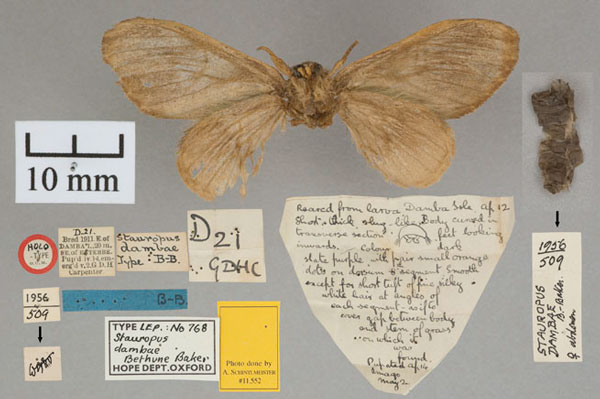 10 mm
HOLO
-TYPE
D.21.
Bred 1911 E. of
DAMBA I., 20 m.
Pup'd iv.14, em-
erg'd v.2. G.D.H.
Carpenter.
Stauropus
dambae
Type : B-B.
D 21
GDHC
1956
509
B-B.
TYPE LEP.: No 768
Stauropus
dambae
Bethune Baker
HOPE DEPT. OXFORD
Photo done by
A. SCHINTLMEISTER
#11.552
Reared from larva Damba Isle Ap. 12
Short thick slug-like Body curved in
transverse section
feet looking
inwards. Colour dark
slate purple with pair small orange
dots on dorsum segment smooth
except for short tuft of fine silky
white hair at angles of
each segment as if to
cover gap between body
and stem of grass
on which it
was
found.
Pupated ap. 14
Imago
May 2
1956
509
STAUROPUS
DAMBAE
B. Baker.
abdomen